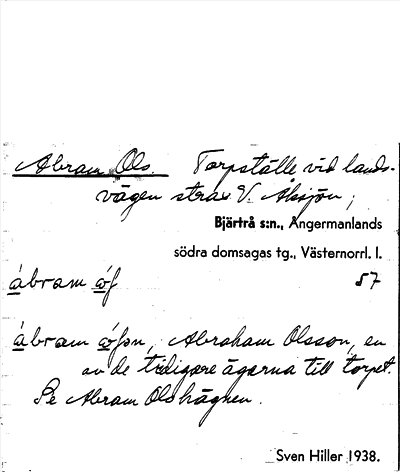 Abram Ols. Torpställe vid lands-
vägen strax V. Alsjön;
Bjärtrå s:n., Ångermanlands
södra domsagas tg., Västernorrl. l.
57
ábram
ábram Abraham Olsson, en
av de tidigare ägarna till torpet.
Se Abram Olshägnen.
Sven Hiller 1938.